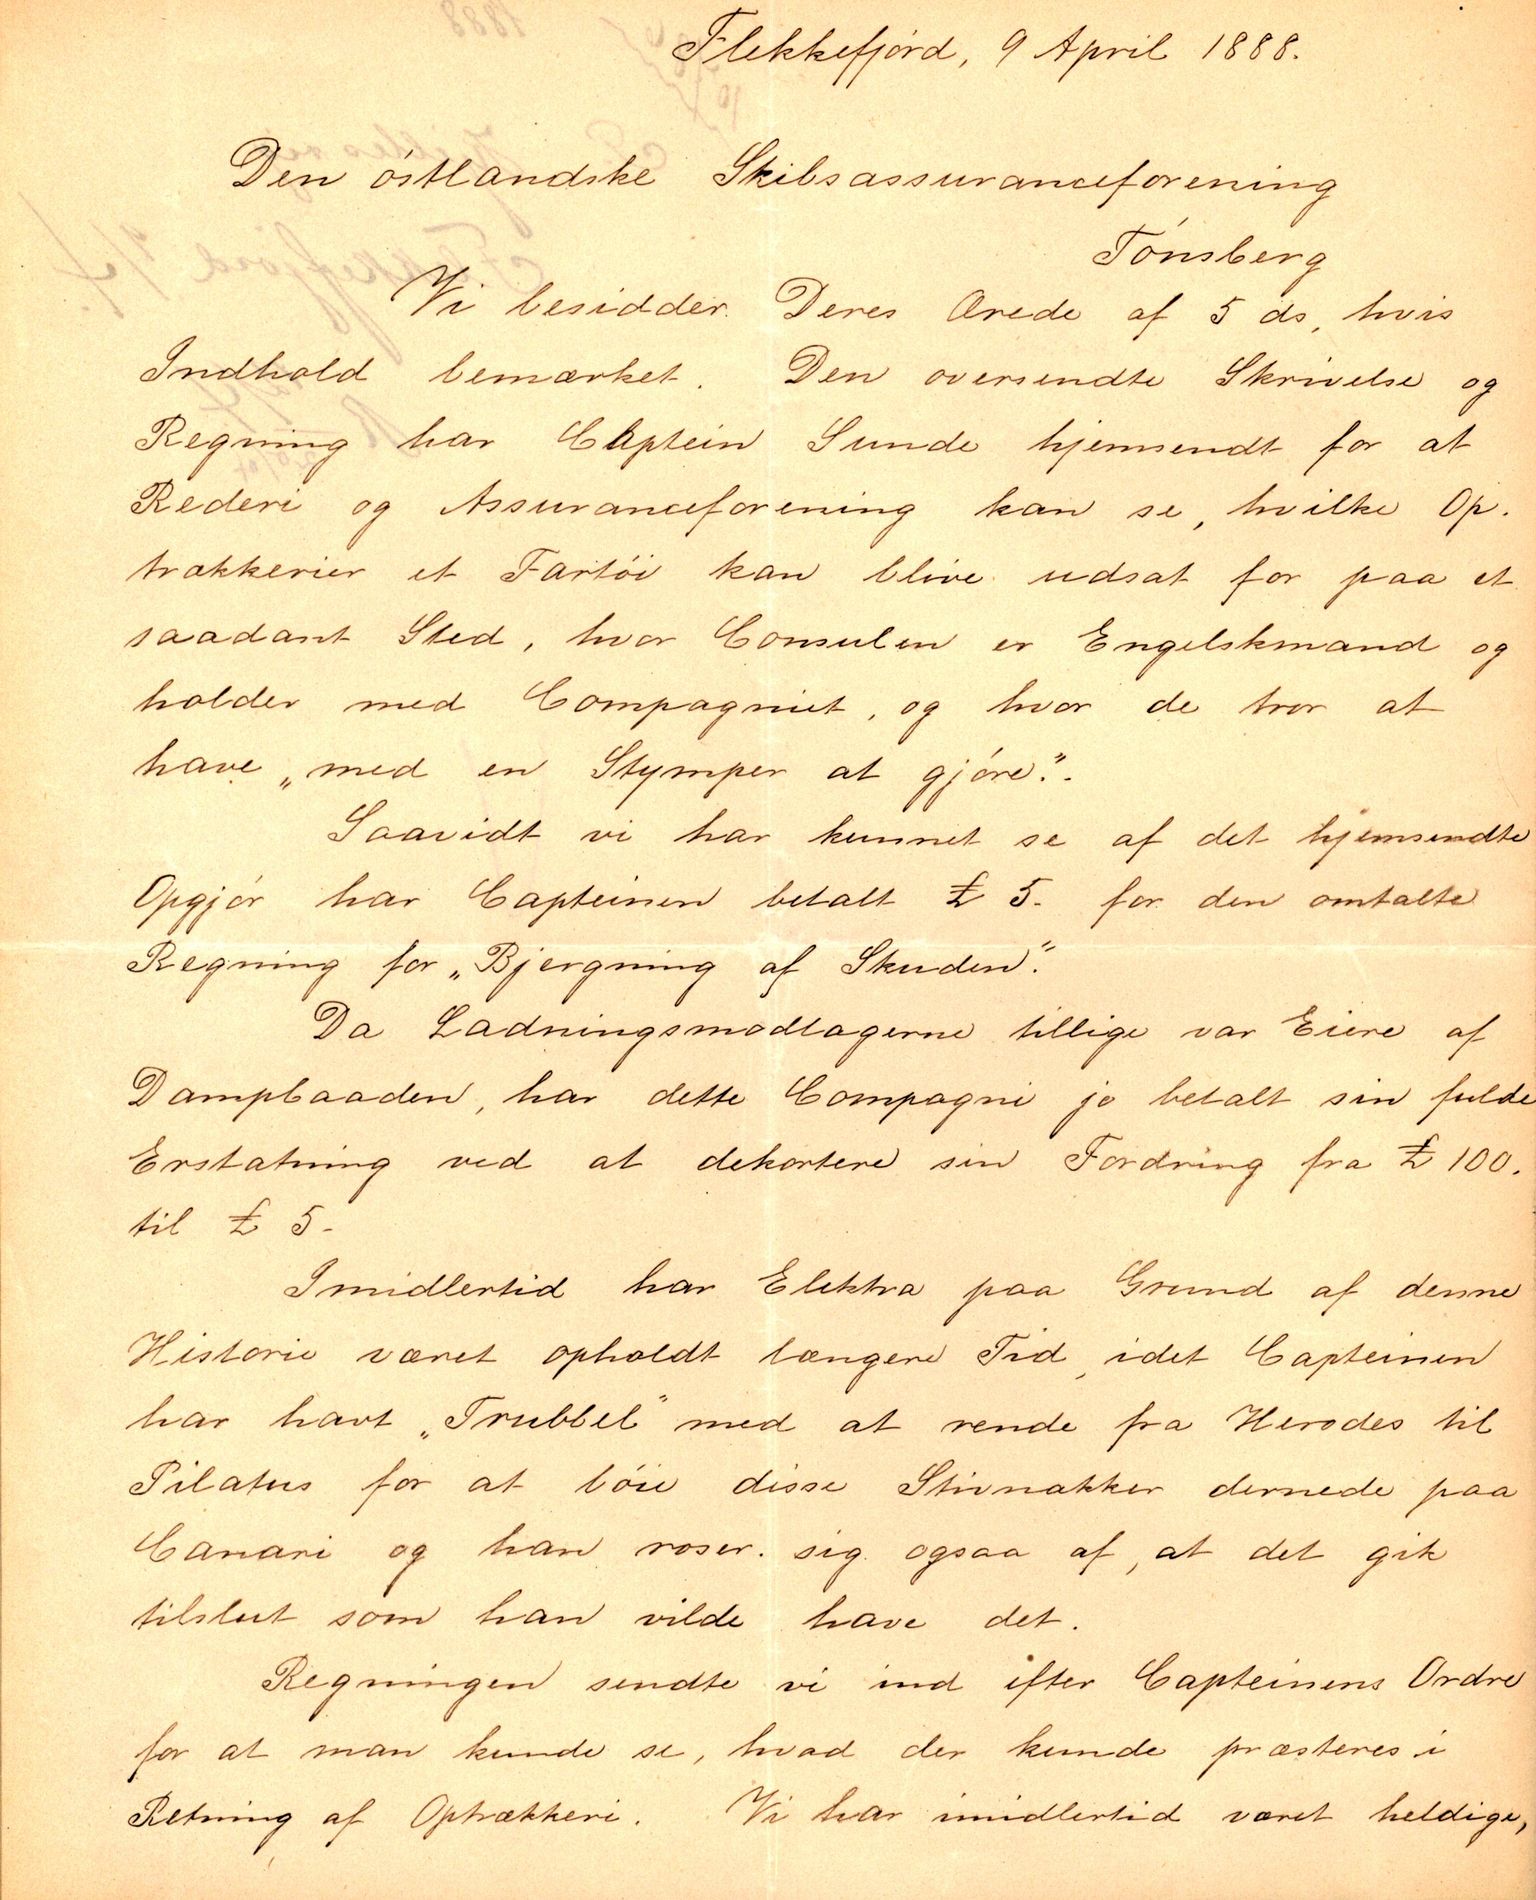 Flekkefjórd, 9 April 1888.
Den óstlandske Skibsassuranceforening
Tónsberg
Vi besidder Deres Ærede af 5 ds, hvis
Indhold bemærket. Den oversendte Skrivelse og
Regning har Captein Sunde hjemsendt for at
Rederi og Assuranceforening kan se, hvilke Op-
trækkerier et Fartói kan blive udsat for paa et
saadant Sted, hvor Consulen er Engelskmand og
holder med Compagniet, og hvor de tror at
have „med en Stymper at gjóre".
Saavidt vi har kunnet se af det hjemsendte
Opgjór har Capteinen betalt £ 5- for den omtalte
Regning for „Bjergning af Skuden".
Da Ladningsmodtagerne tillige var Eiere af
Dampbaaden, har dette Compagni jo betalt sin fulde
Erstatning ved at dekortere sin Fordring fra £ 100.
til £ 5-
Imidlertid har Elektra paa Grund af denne
Historie været opholdt længere Tid, idet Capteinen
har havt „Trubbel" med at rende fra Herodes til
Pilatus for at bóie disse Stivnakker dernede paa
Canari og han roser sig ogsaa af, at det gik
tilslut som han vilde have det.
Regningen sendte vi ind efter Capteinens Ordre
for at man kunde se, hvad der kunde præsteres i
Retning af Optrækkeri. Vi har imidlertid været heldige,